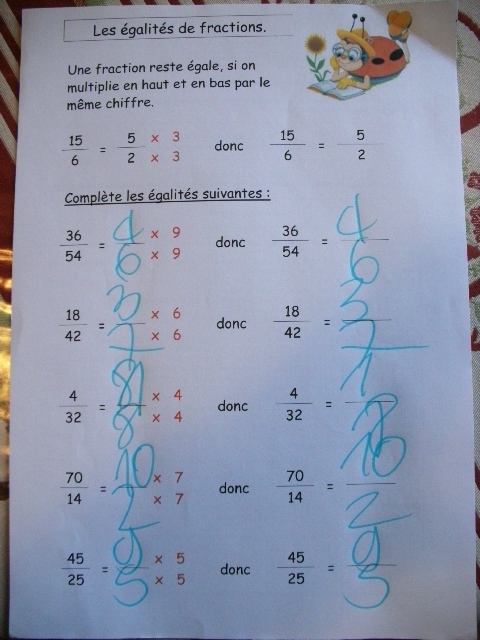 Les égalités de fractions.
Une fraction reste égale, si on
multiplie en haut et en bas par le
même chiffre.
15/6 = 5/2 x 3 / x 3 donc 15/6 = 5/2
Complète les égalités suivantes :
36/54 = 4/6 x 9 / x 9 donc 36/54 = 4/6
18/42 = 3/7 x 6 / x 6 donc 18/42 = 3/7
4/32 = /8 x 4 / x 4 donc 4/32 = 1/8
70/14 = 10/2 x 7 / x 7 donc 70/14 = 10/2
45/25 = 9/5 x 5 / x 5 donc 45/25 = 9/5